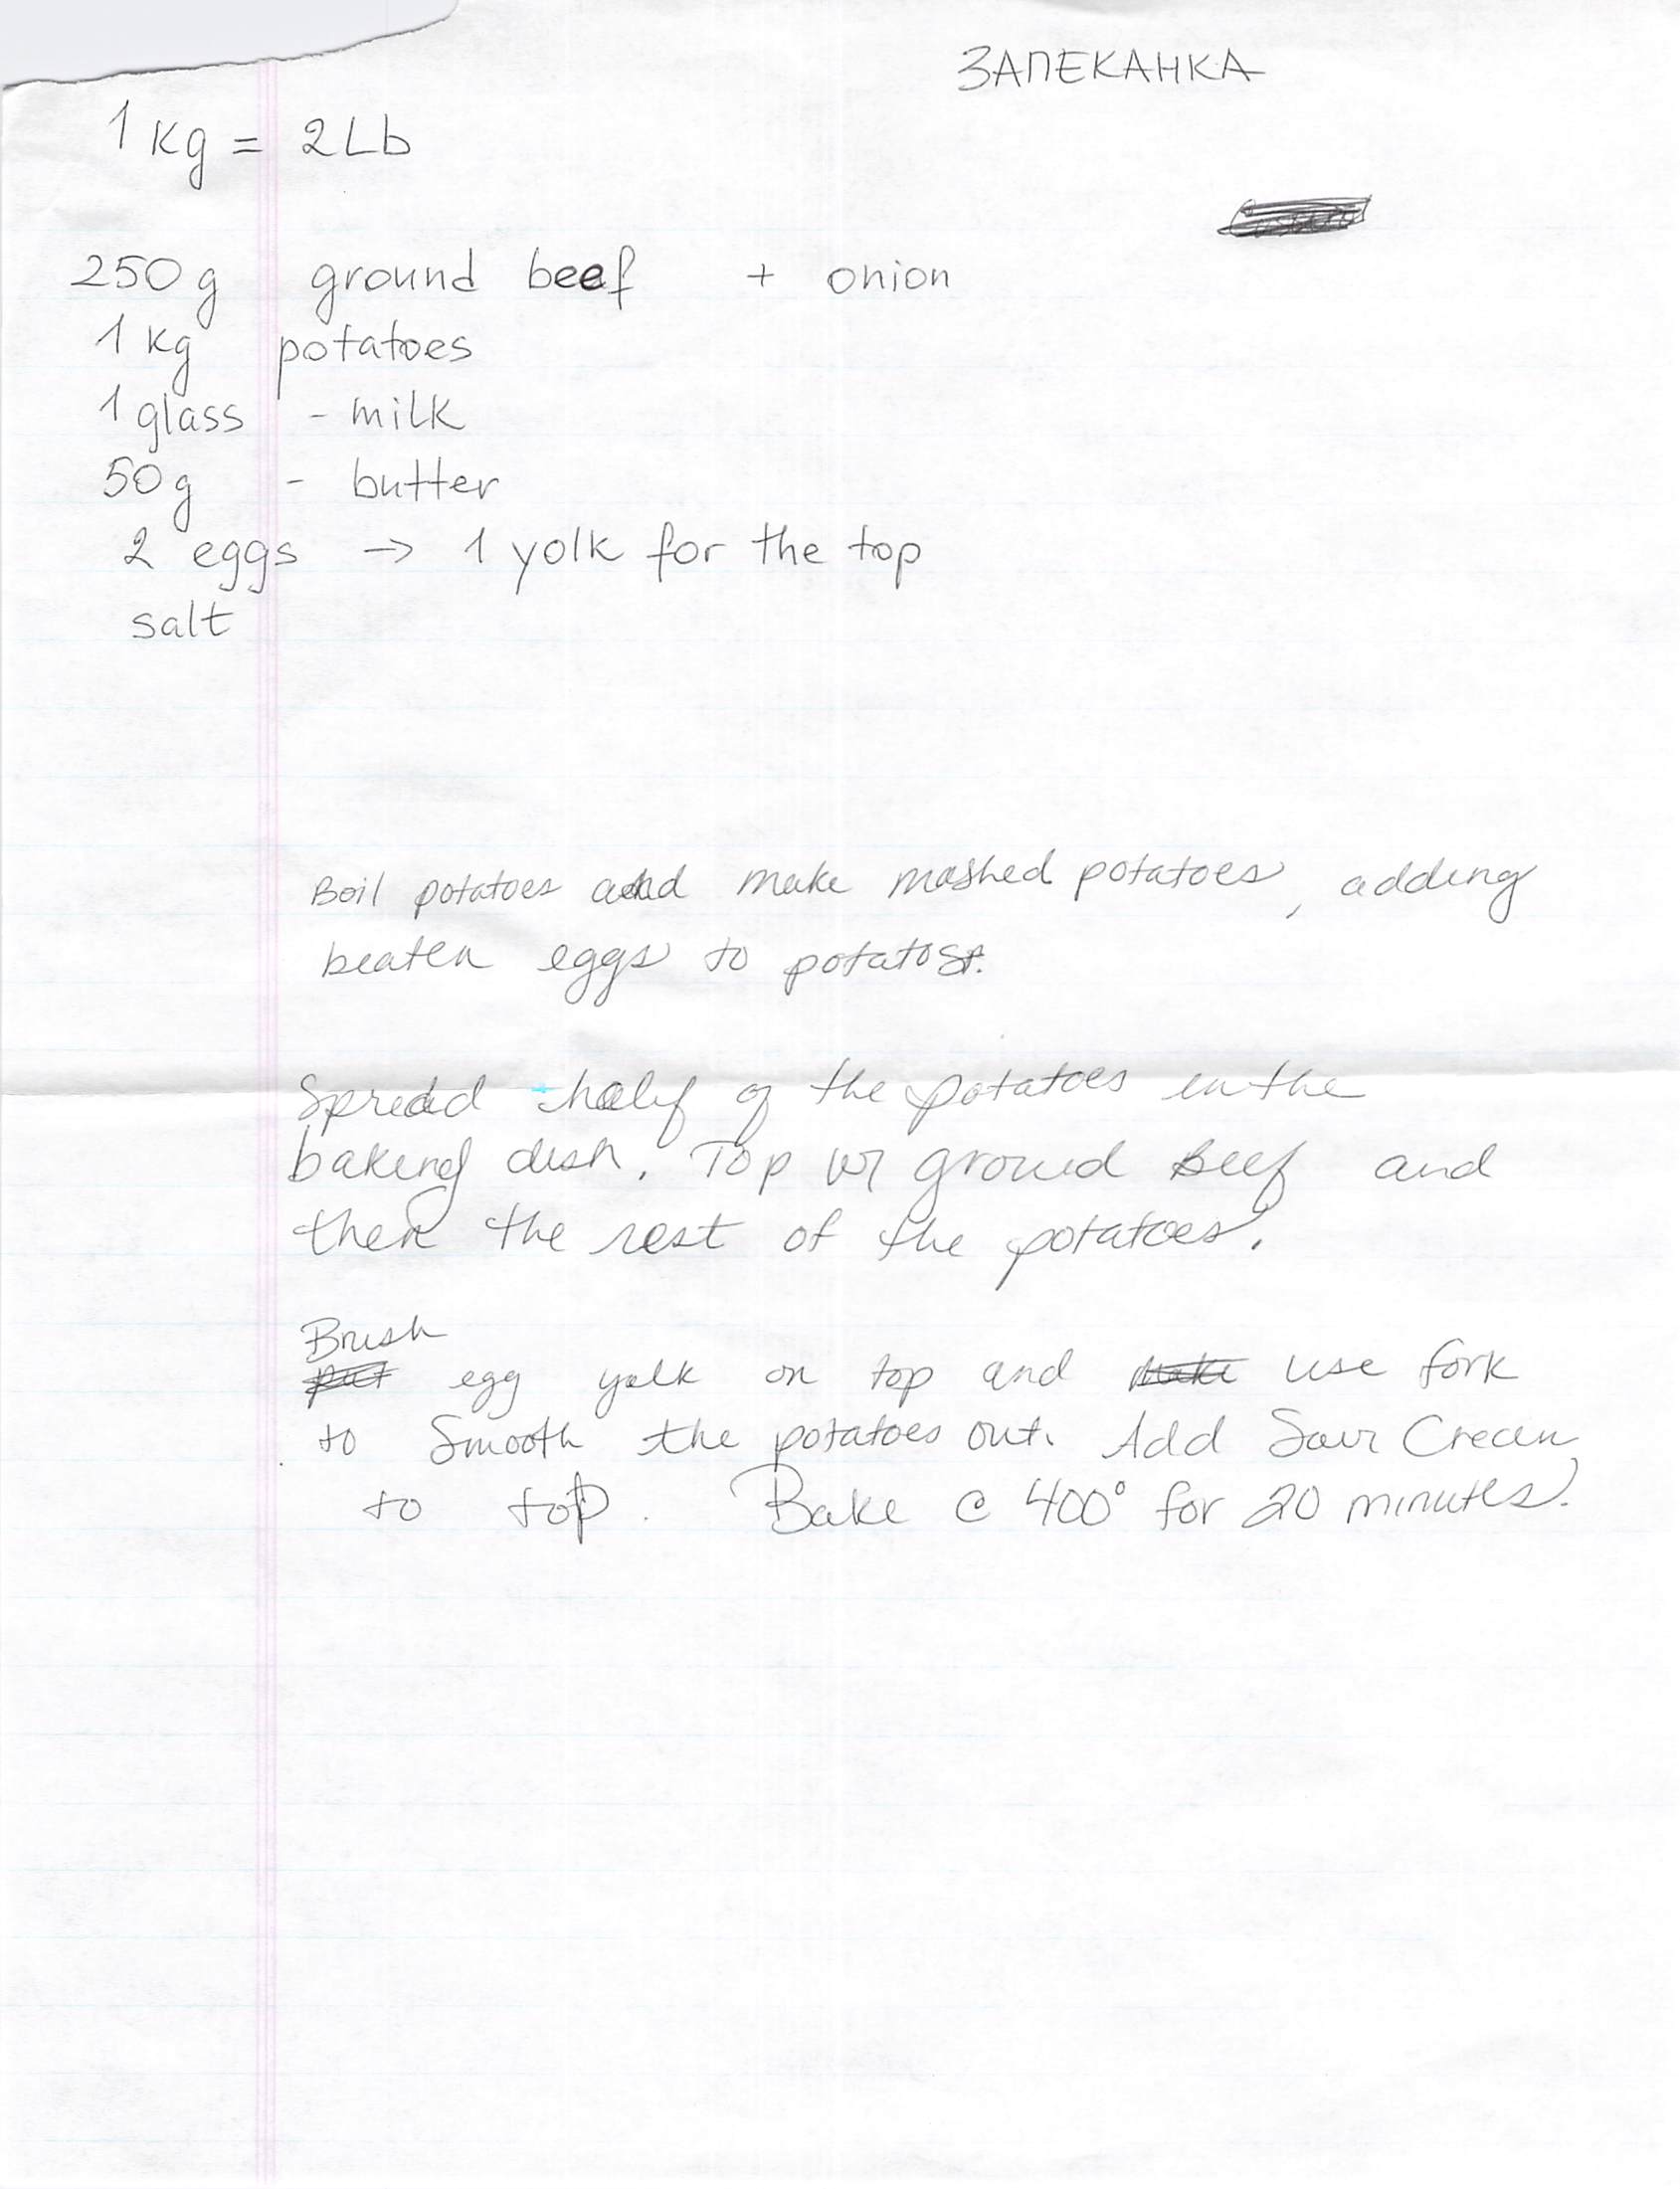 ЗАПЕКАНКА
1 kg = 2 Lb
250 g ground beef + onion
1 kg potatoes
1 glass - milk
50 g - butter
2 eggs → 1 yolk for the top
salt
Boil potatoes and make mashed potatoes, adding
beaten eggs to potatos.
Spread half of the potatoes in the
baking dish. Top w/ ground Beef and
then the rest of the potatoes.
Brush
put egg yolk on top and make use fork
to Smooth the potatoes out. Add Sour Cream
to top. Bake @ 400° for 20 minutes.